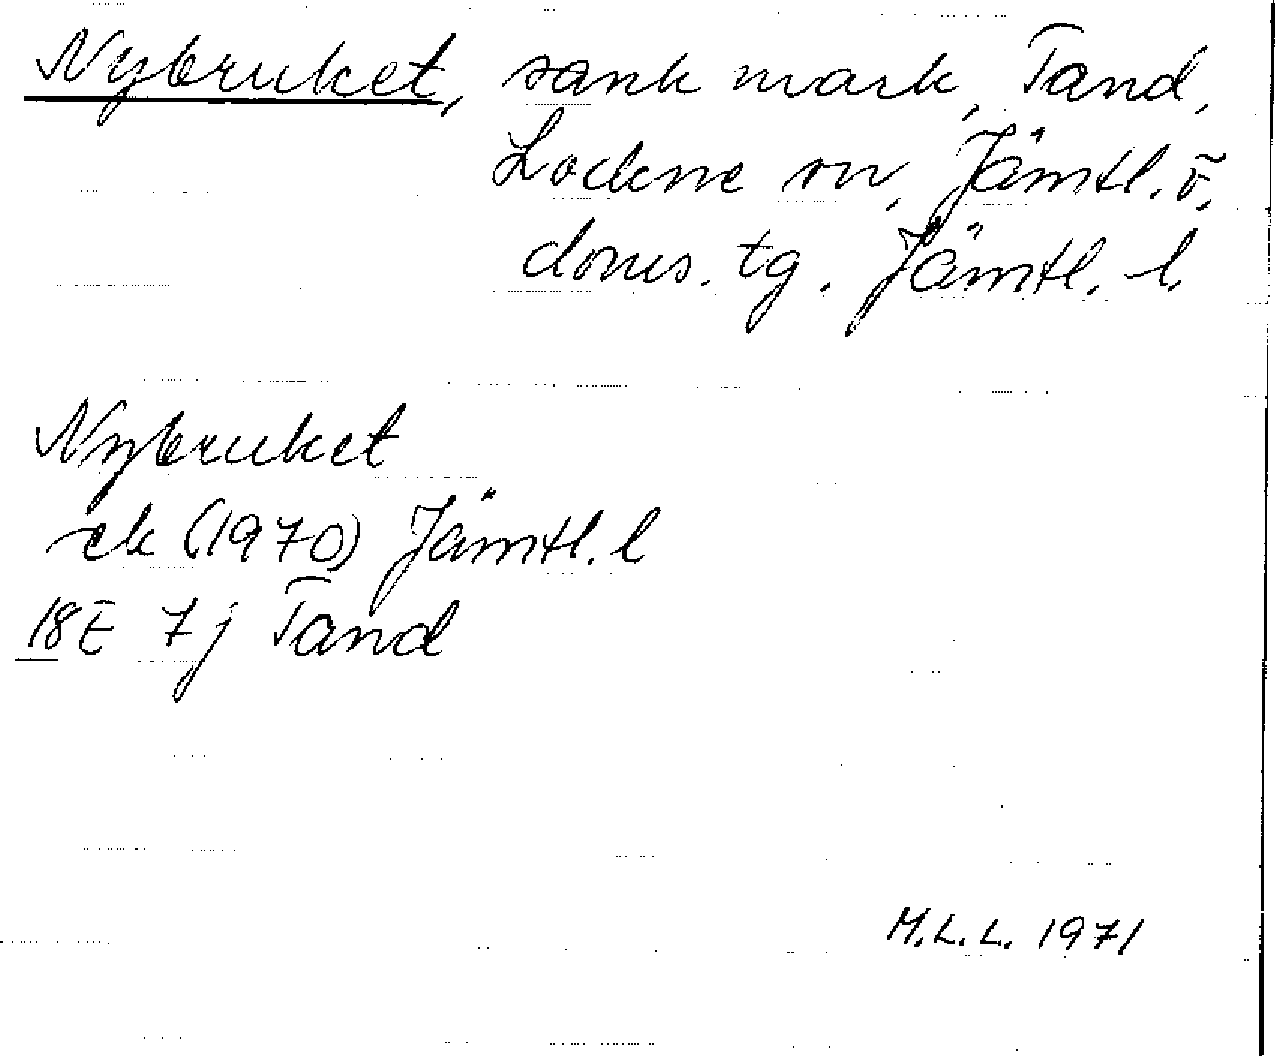 Nybruket, sank mark, Tand,
Lockne sn, Jämtl. ö.
doms. tg. Jämtl. l.
Nybruket
ek (1970) Jämtl. l
18E 7j Tand
M.L.L. 1971